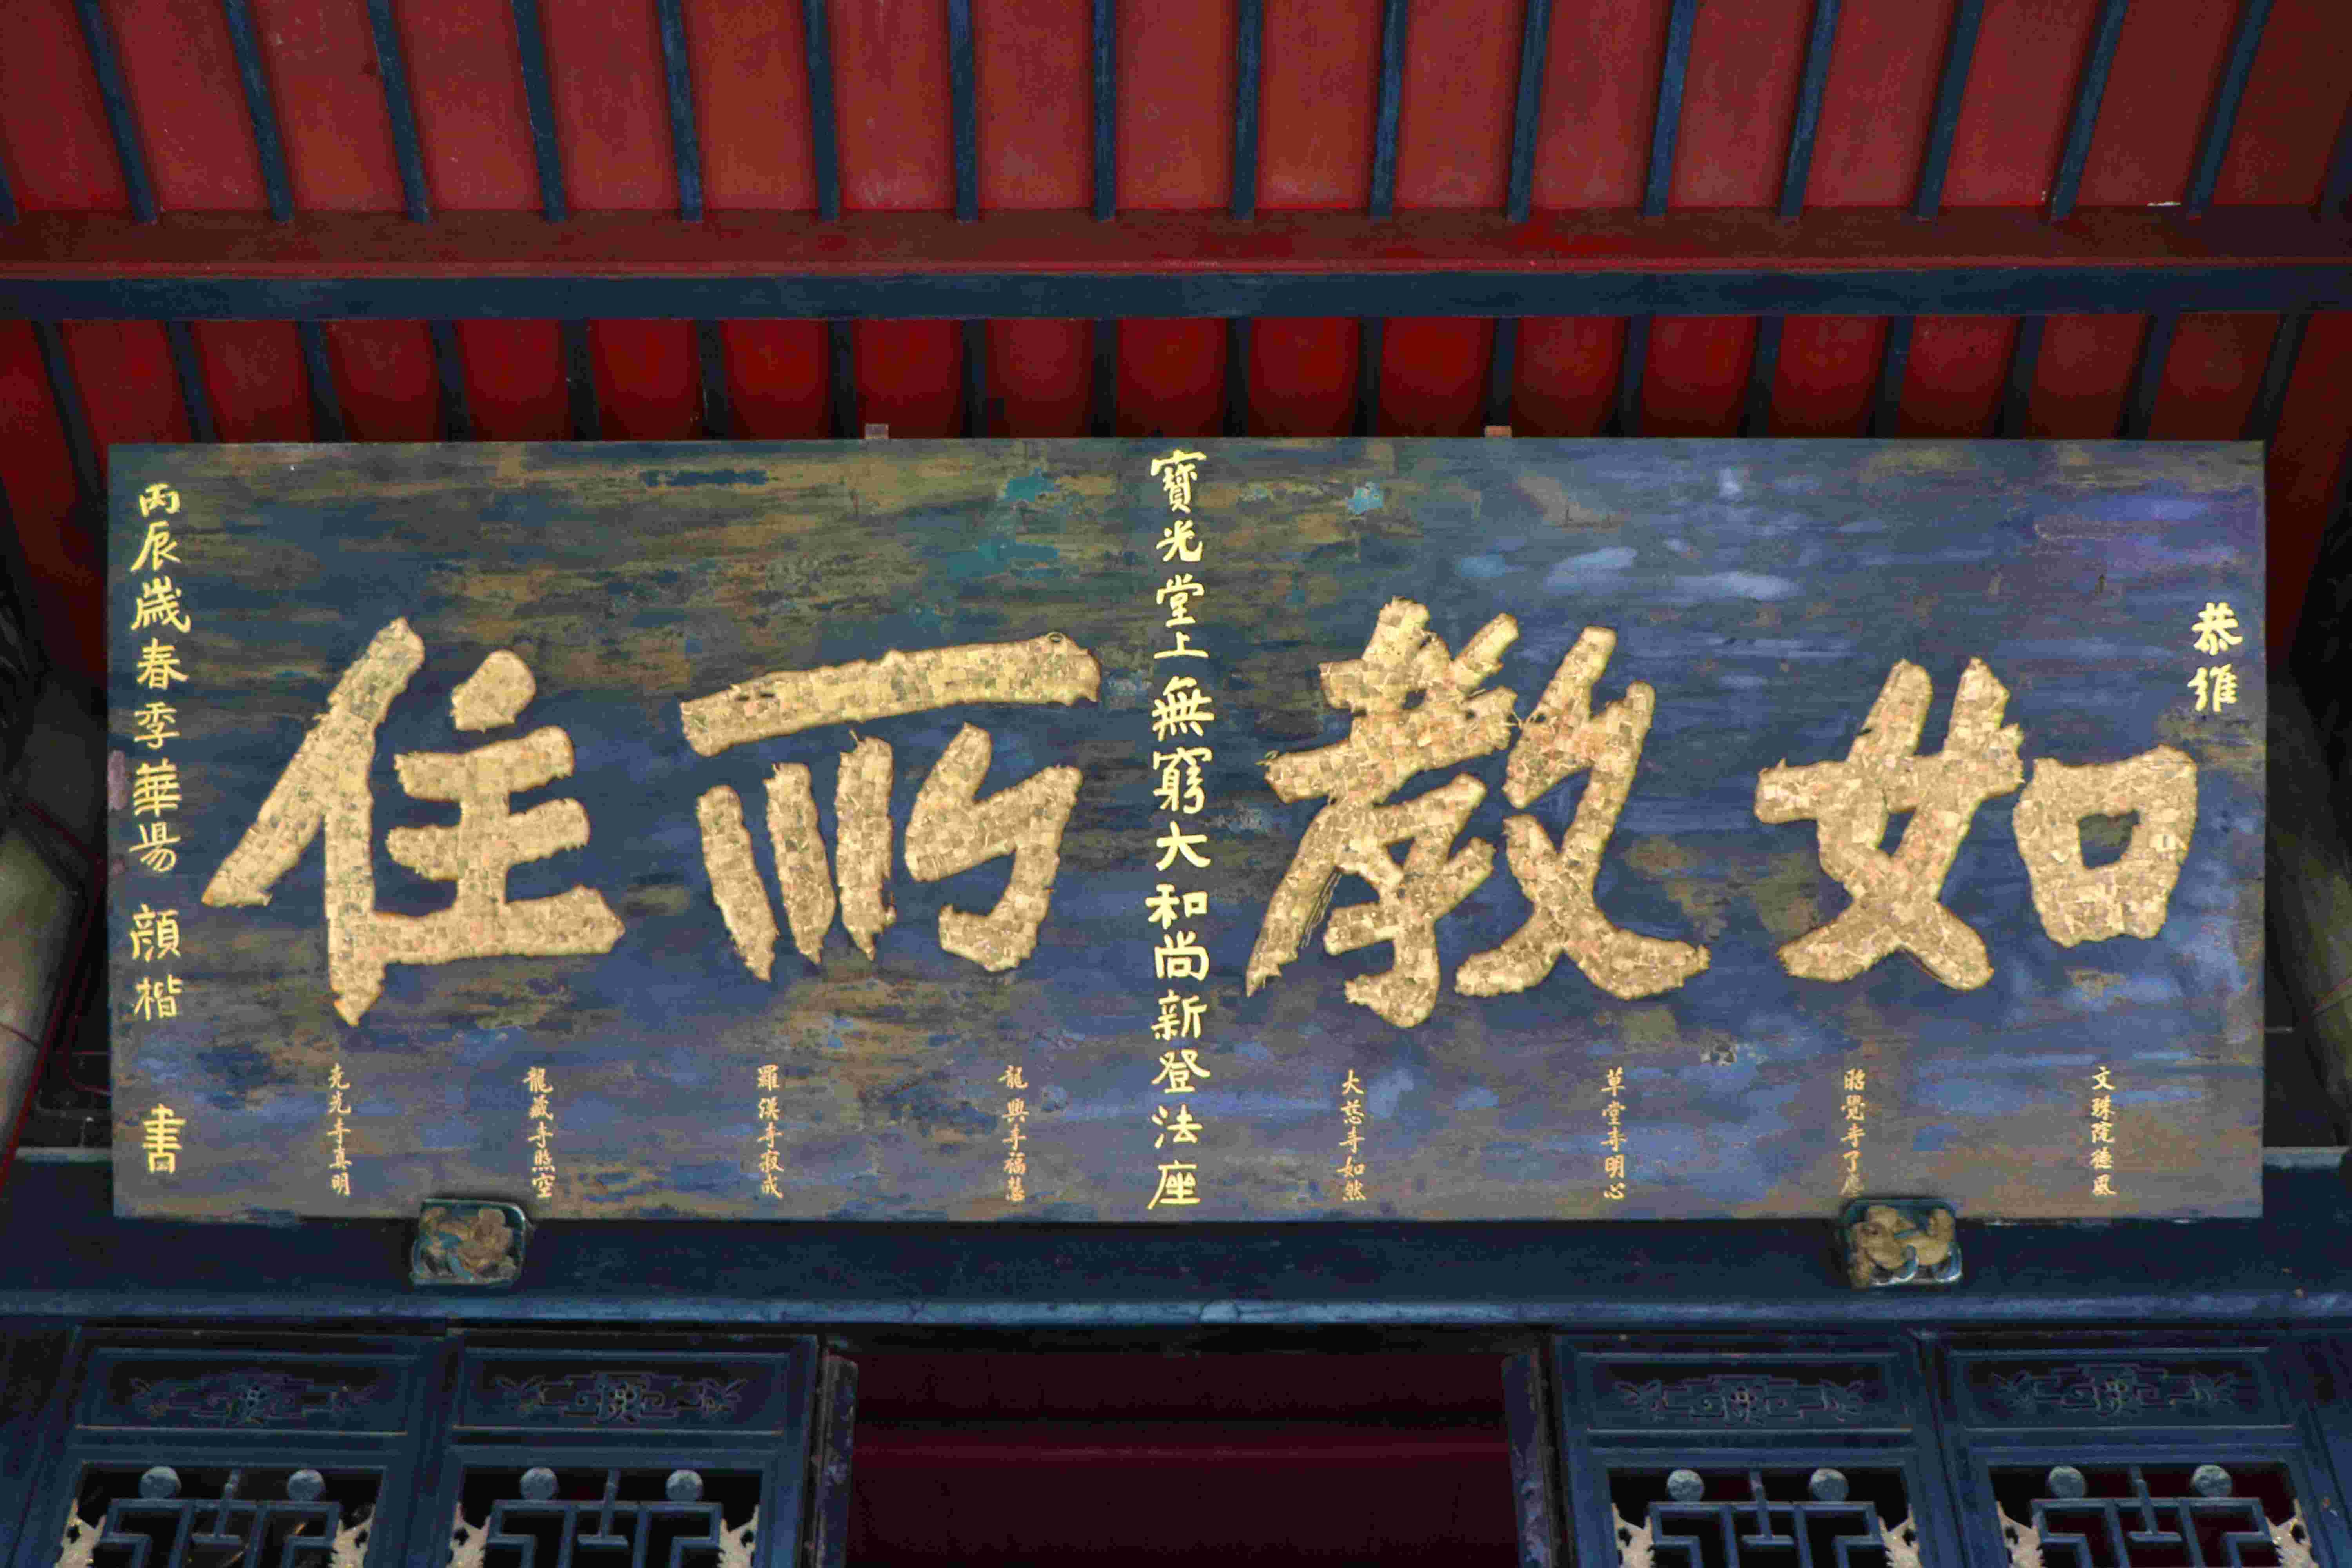 恭維
如教所住
寶光堂上無窮大和尚新登法座
文殊院德風
昭覺寺了
草堂寺明心
大慈寺如然
龍興寺福慧
羅漢寺寂成
龍藏寺照空
堯光寺真明
丙辰歲春季華陽顏楷書